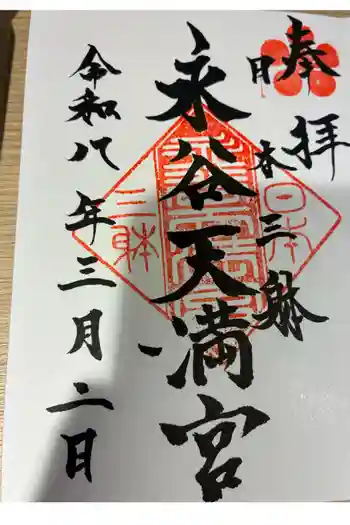 奉拝
日本三躰
永谷天満宮
令和八年三月二日
日本
三躰